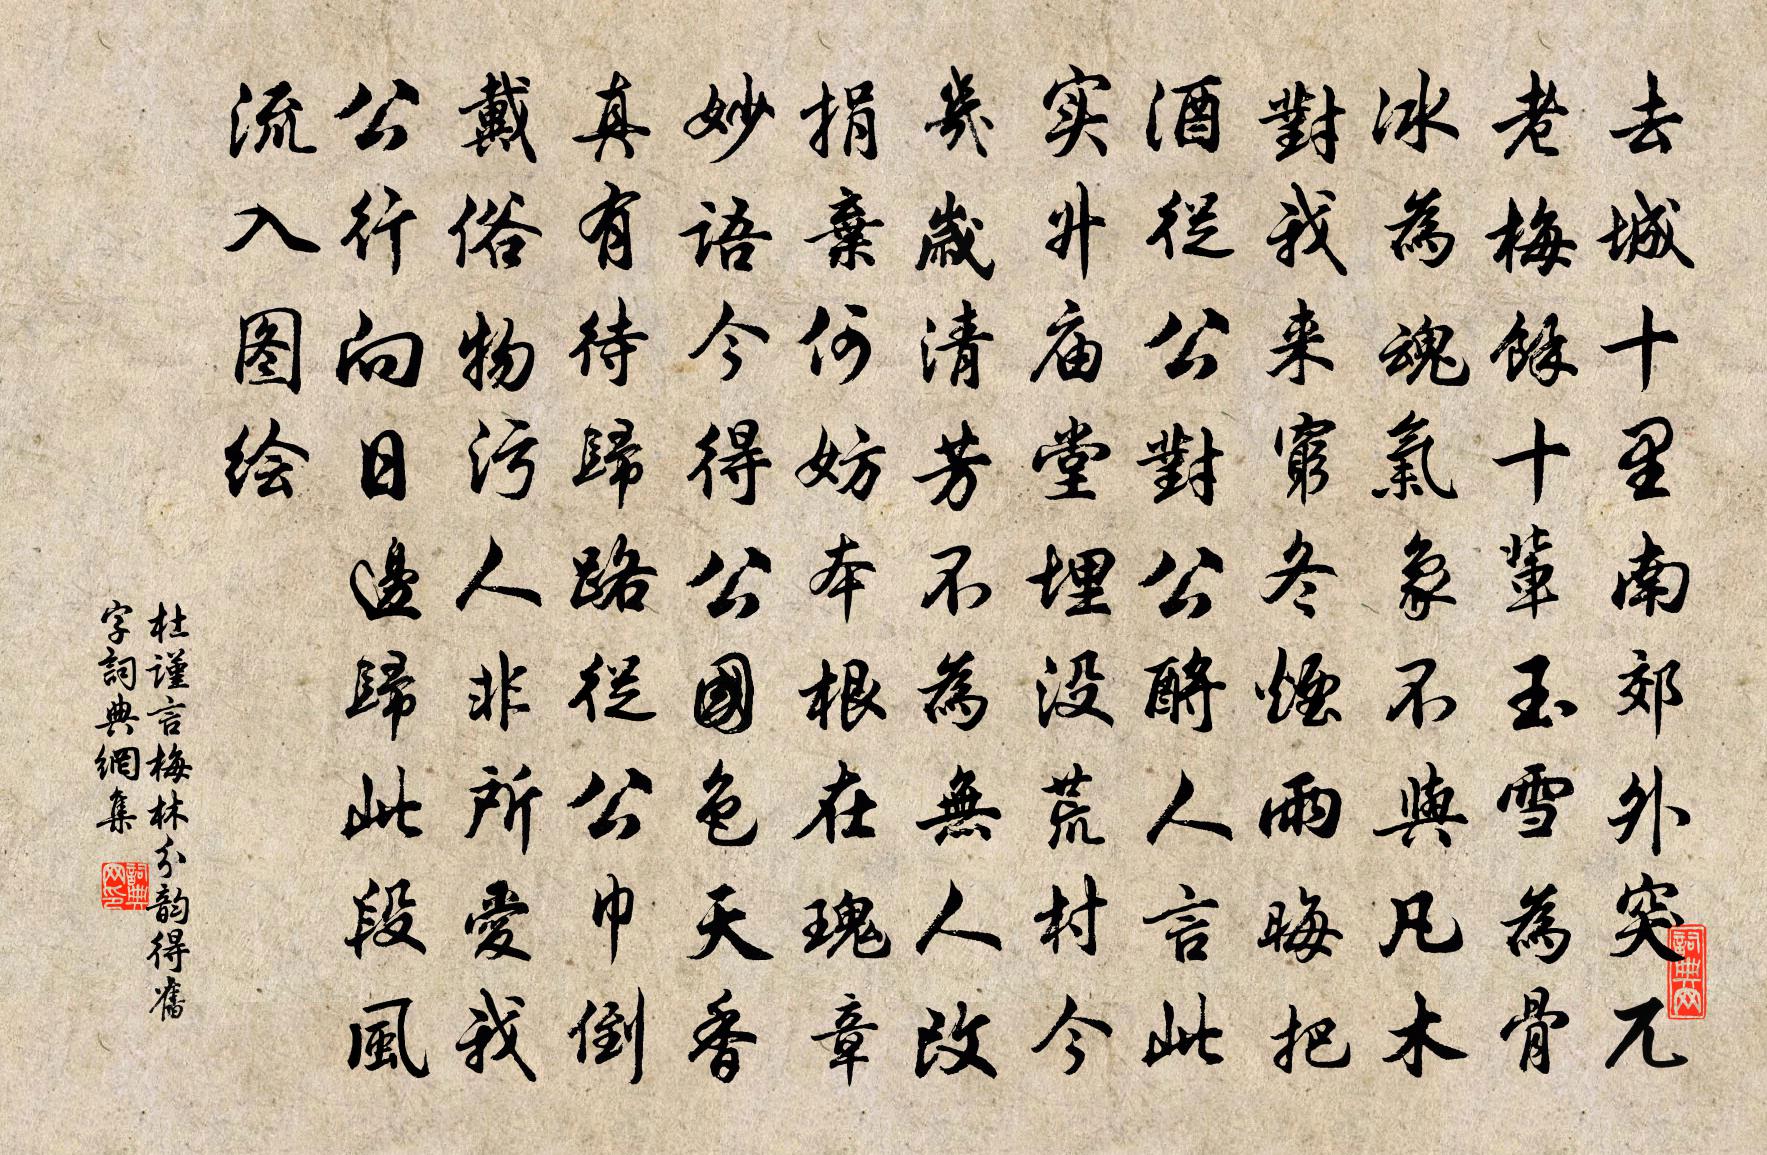 去城十里南郊外突兀
老梅餘十輩玉雪為骨
冰為魂氣象不與凡木
對我来窮冬煙雨晦把
酒從公對公酹人言此
实升庙堂埋没荒村今
幾歲清芳不為無人改
捐棄何妨本根在瑰章
妙語今得公國色天香
真有待歸路從公巾倒
戴俗物污人非所愛我
公行向日邊歸此段風
流入图绘
杜謹言梅林分韵得舊
字詞典網集
詞典网
詞典网印